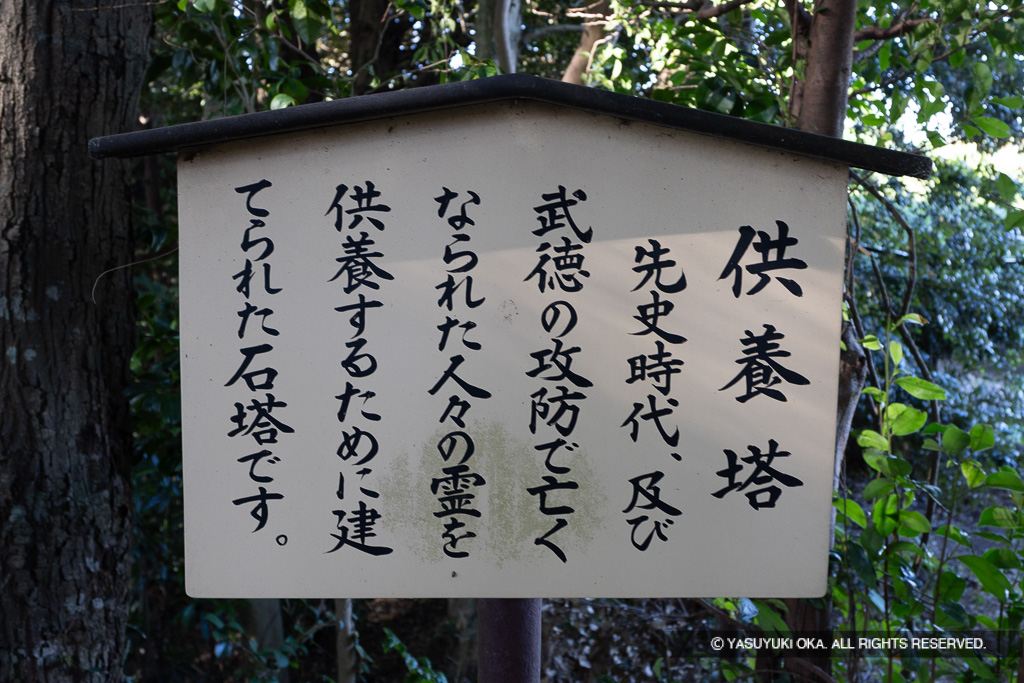 供養塔
先史時代、及び
武徳の攻防で亡く
なられた人々の霊を
供養するために建
てられた石塔です。
© YASUYUKI OKA. ALL RIGHTS RESERVED.